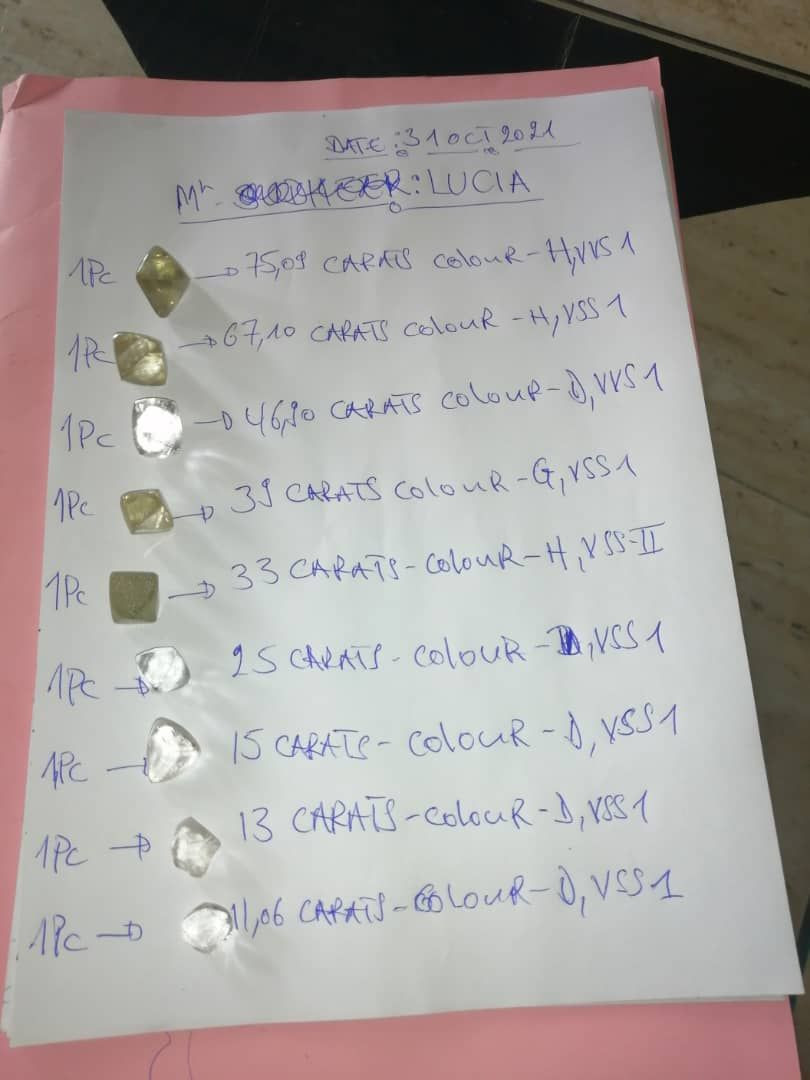 DATE: 31 OCT 2021
Mr. : LUCIA
1Pc → 75,09 CARATS COLOUR - H, VVS1
1Pc → 67,10 CARATS COLOUR - H, VSS1
1Pc → 46,90 CARATS COLOUR - D, VVS1
1Pc → 39 CARATS COLOUR - G, VSS1
1Pc → 33 CARATS - COLOUR - H, VSS-II
1Pc → 25 CARATS - COLOUR - D, VSS1
1Pc → 15 CARATS - COLOUR - D, VSS1
1Pc → 13 CARATS - COLOUR - D, VSS1
1Pc → 11,06 CARATS - COLOUR - D, VSS1